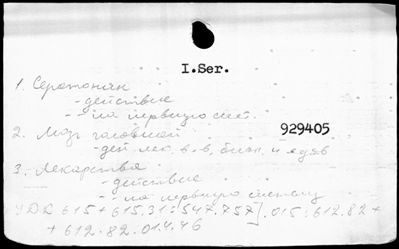 I.Ser.
1. Серотонин
- действие
- - на нервную сист.
2. Мозг головной
929405
- дей. лек. в-в, биол. и ядов
3. Лекарства
- действие
- - на нервную систему
УДК 615+615.31:547.757].015:612.82+
+ 612.82.014.46